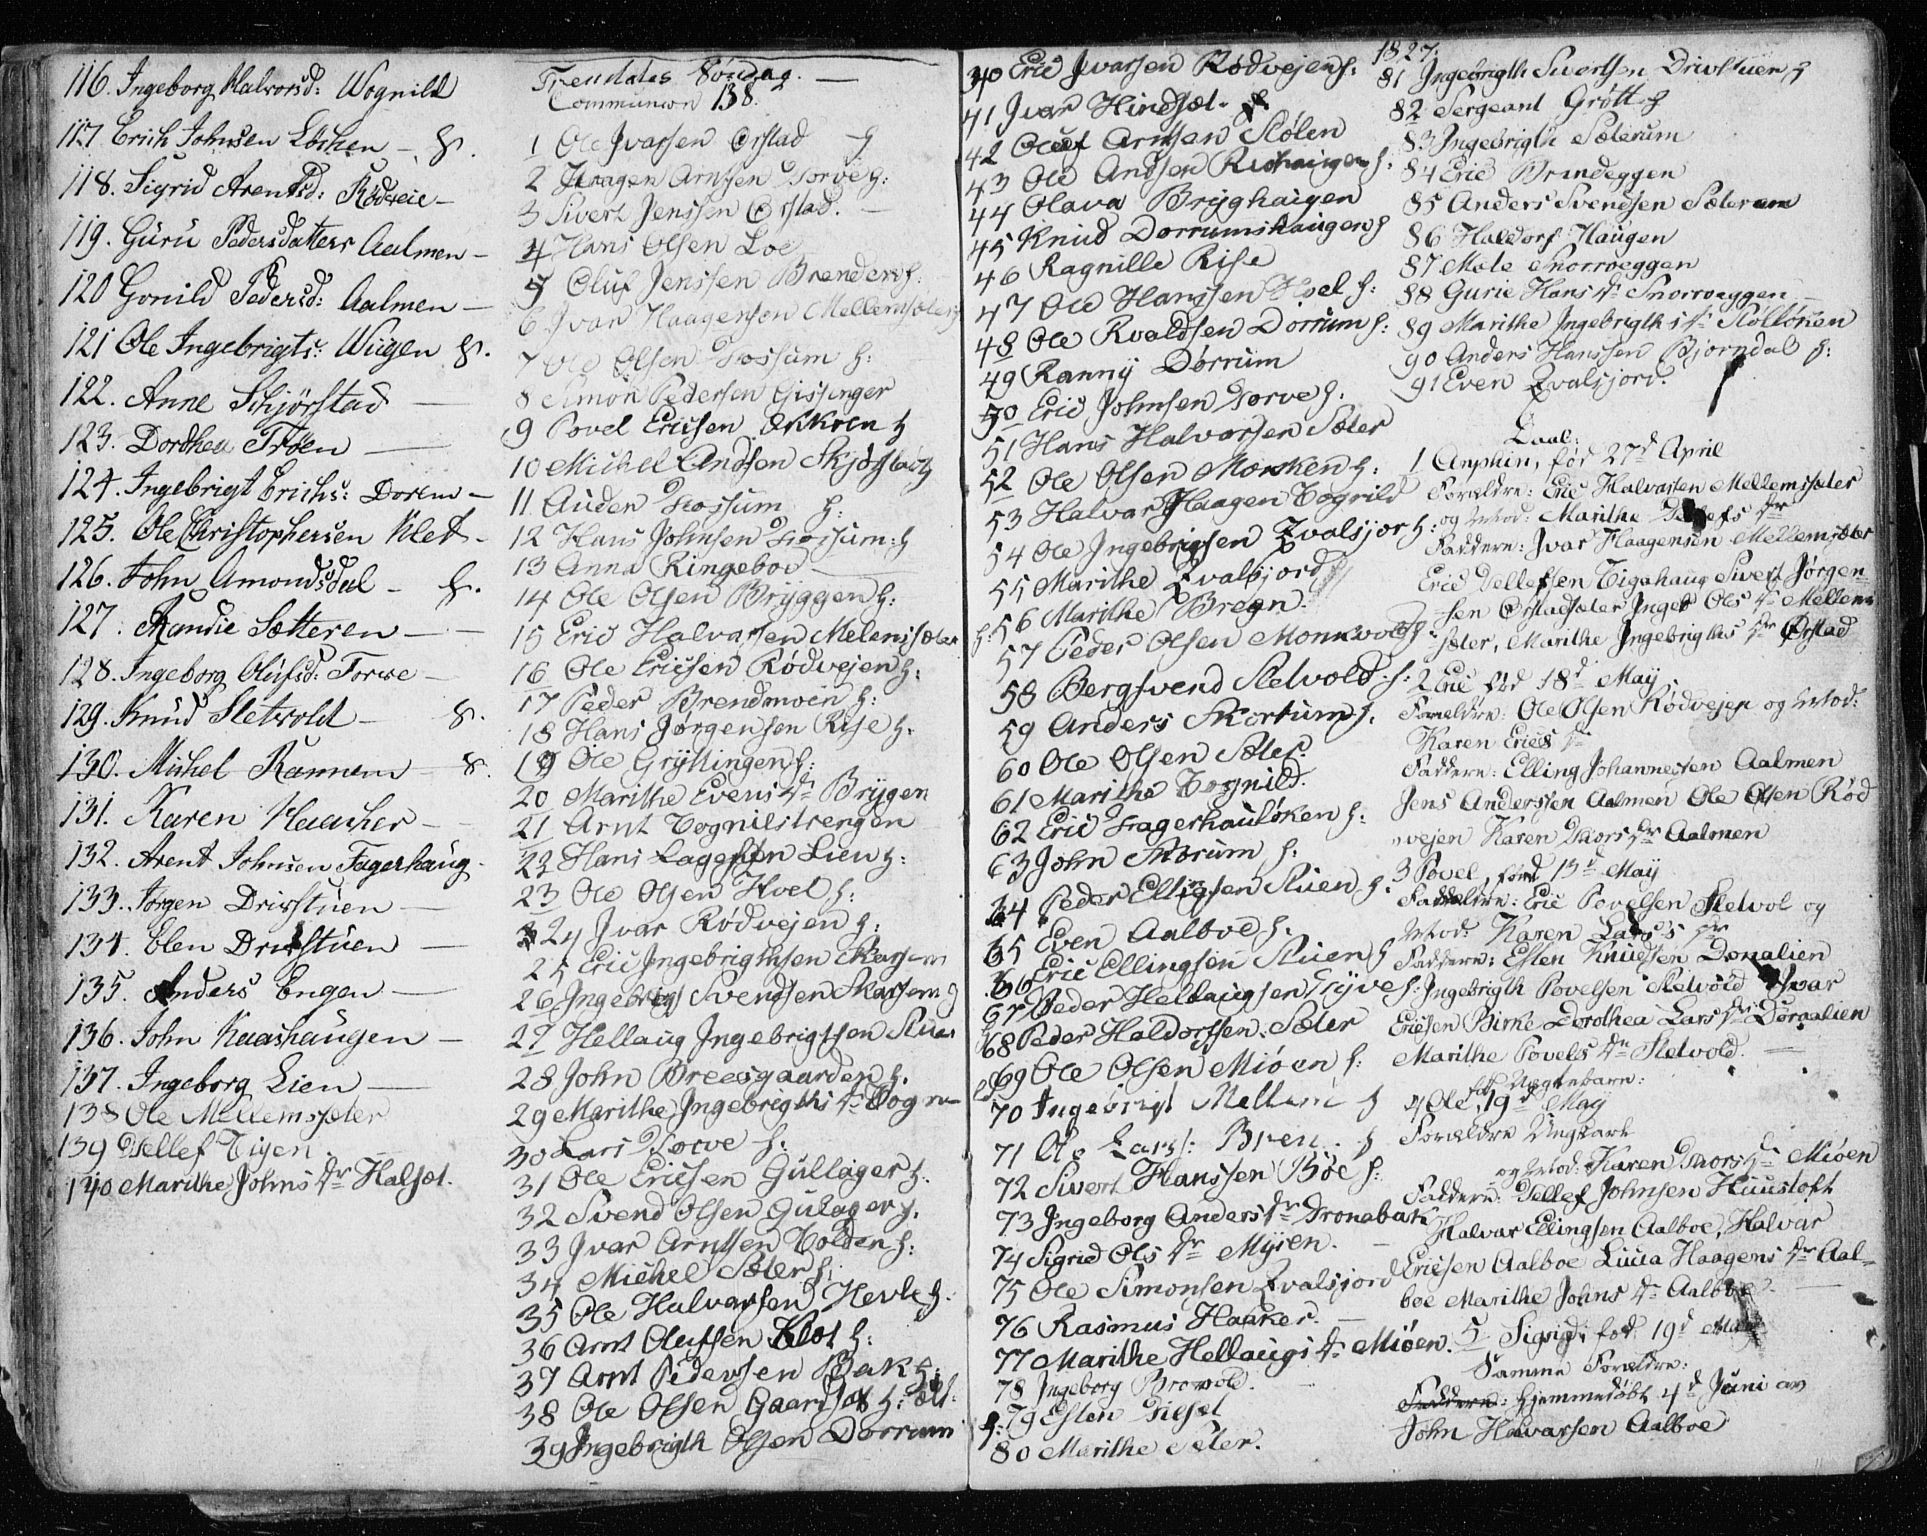 116. Ingeborg Halvorsd: Wognild
117 Erich Johnsen Löchen - H.
118. Sigrid Arentsd: Rödveie -
119. Guru Pedersdatter Aalmen -
120 Gonild Pedersd: Aalmen -
121 Ole Ingebrigts: Wiigen H.
122. Anne Schjörstad -
123. Dorthea Troen -
124. Ingebrigt Erichs: Dorem -
125. Ole Christophersen Klet -
126. John Amondsdal - H.
127. Randie Sætteren -
128. Ingeborg Olufsd: Torve -
129. Knud Sletvold - H.
130. Michel Rannem - H.
131. Karen Haacker -
132. Arent Johnsen Fagerhaug -
133. Jörgen Drivstuen -
134. Elen Drivstuen -
135. Anders Engen -
136. John Kaashaugen -
137. Ingeborg Lien -
138 Ole Mellemsæter
139 Dellef Vigen
140 Marithe Johns dr Halsæt.
Trendates Söndag. -
Communion 138.
1 Ole Ivarsen Ørstad - H
2 Haagen Arntsen Torve H:
3 Sivert Jenssen Ørstad. -
4 Hans Olsen Loe
5 Oluf Jenssen Brenden H:
6 Ivar Haagensen Mellemsæter H
7 Ole Olsen Fossum H:
8 Simon Pedersen Gissinger
9 Povel Ericsen Økkren H
10 Michel Andsen Skjørstad H
11 Auden Fossum H:
12 Hans Johnsen Fossum: H
13 Anna Ringeboe
14 Ole Olsen Bryggen H:
15 Eric Halvarsen Melemsæter
16 Ole Ericsen Rødvejen H:
17 Peder Brendmoen H:
18 Hans Jørgensen Rise H.
19 Ole Gryttingen H:
20 Marithe Evens dr Brygen
21 Arnt Vognilstrengen
22 Hans Lagessen Lien H:
23 Ole Olsen Hoel H:
24 Ivar Rødvejen H:
25 Eric Ingebrigthsen Skarsem
26 Ingebrigt Svendsen Skarsem H
27 Hellaug Ingebrigtsen Stuen
28 John Breesgaarden H.
29 Marithe Ingebrigths dr Vogn
30 Lars Torve H:
31 Ole Ericsen Gullager H.
32 Svend Olsen Gulager H.
33 Ivar Arntsen Volden H:
34 Michel Sæter H:
35 Ole Halvarsen Hevle H.
36 Arnt Olufsen Klet H:
37 Arnt Pedersen Bak H:
38 Ole Olsen Gaardsæt H:
39 Ingebrigth Olsen Dorrum
40 Eric Ivarsen Rødvejen H:
41 Ivar Hindsæt. H
42 Oluf Arntsen Stølen
43 Ole Andsen H.
44 Olava Bryghaugen
45 Knud Dorrumshaugen H
46 Ragnille Rise
47 Ole Hanssen Hoel H:
48 Ole Roaldsen Dorrum H:
49 Ranny Dørrum
50 Eric Johnsen Torve H.
51 Hans Halvorsen Sæter
52 Ole Olsen Morken H:
53 Halvar Haagen Vognild
54 Ole Ingebrigtsen Qvalsjor H:
55 Marithe Qvalsjord
56 Marithe Bregn.
57 Peder Olsen Monkvold H:
58 Bergsvend Sletvold. H:
59 Anders Skortum H.
60 Ole Olsen Sæter.
61 Marithe Vognild.
62 Eric Fagerhauløken H:
63 John Skorum H:
64 Peder Ellingsen Stuen H.
65 Even Aalboe H:
66 Eric Ellingsen Stuen H
67 Peder Hellaugsen Tyve H:
68 Peder Haldorsen. Sæter
69 Ole Olsen Miøen H:
70 Ingebrigt Mellem H
71 Ole Lars: Bren. H
72 Sivert Hanssen Bøe H:
73 Ingeborg Anders dr Dronebak
74 Sigrid Ols dr Myren. -
75 Ole Simonsen Qvalsjord
76 Rasmus Haaker. -
77 Marithe Hellaugs dr Miøen.
78 Ingeborg Brovold.
79 Esten
80 Marithe Sæter.
1827.
81 Ingebrigth Sivertsen Drivstuen H
82 Sergeant Grøtt H
83 Ingebrigth Sæterum
84 Eric Brandeggen
85 Anders Svendsen Sæterum
86 Haldorf Haugen
87 Mæle Snorroeggen
88 Gurie Hans dr Snorroeggen
89 Marithe Ingebrigths dr Stolløken
90 Anders Hanssen Bjørndal H:
91 Even Qvalsjord.
Daab:
1 Anphin, fød 27d April
Forældre: Eric Halvarsen Mellemsæter
og Mod: Marithe Dellefs dr
Faddere: Ivar Haagensen Mellemsæter
Eric Dellefsen Vigahaug Sivert Jørgen-
sen Ørstadsæter Ingeb Ols dr Mellem
sæter, Marithe Ingebrigths dr Ørstad
2 Eric fød 18d May
Forældre: Ole Olsen Rødvejen og Mod:
Karen Erics dr
Faddere: Elling Johannessen Aalmen
Jens Anderssen Aalmen Ole Olsen Rød
vejen Karen Thors dr Aalmen
3 Povel, fød 13d May
Forældre: Eric Povelsen Sletvol og
Mod: Karen Lars dr
Faddere: Esten Knudsen Donalien
Ingebrigth Povelsen Sletvold Ivar
Ericsen Birke Dorothea Lars dr Donalien
Marithe Povels dr Sletvold. -
Uægtebarn:
4 Ole, fød 19d May
Forældre Ungkarl
og Mod: Karen Thors dr Miøen
Faddere: Dellef Johnsen Huustoft
Halvar Ellingsen Aalboe, Halvar
Ericsen Aalboe Lucia Haagens dr Aal-
boe Marithe Johns dr Aalboe.
5 Sigrid, fød 19d May
Samme Forældre:
Faddere: Hjemmedøbt 4d Juni av
John Halvarsen Aalboe